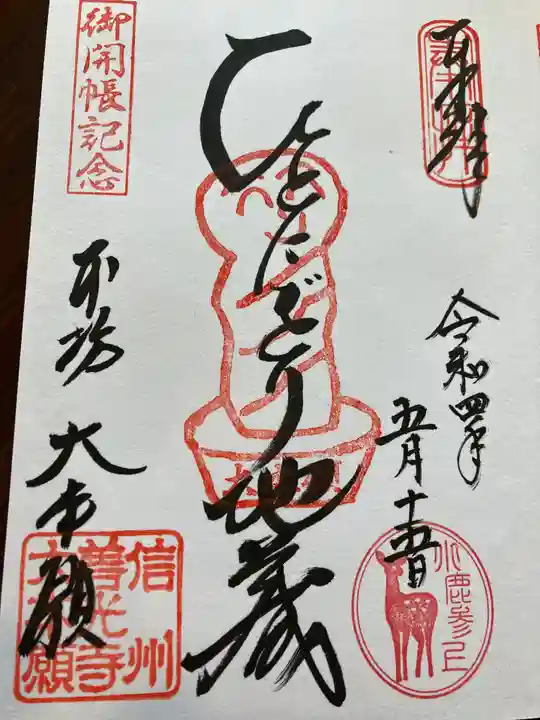 奉拝
令和四年
五月十五日
小鹿参上
ひとにぎり地蔵
御開帳記念
本坊
大本願
信州
善光寺
大本願